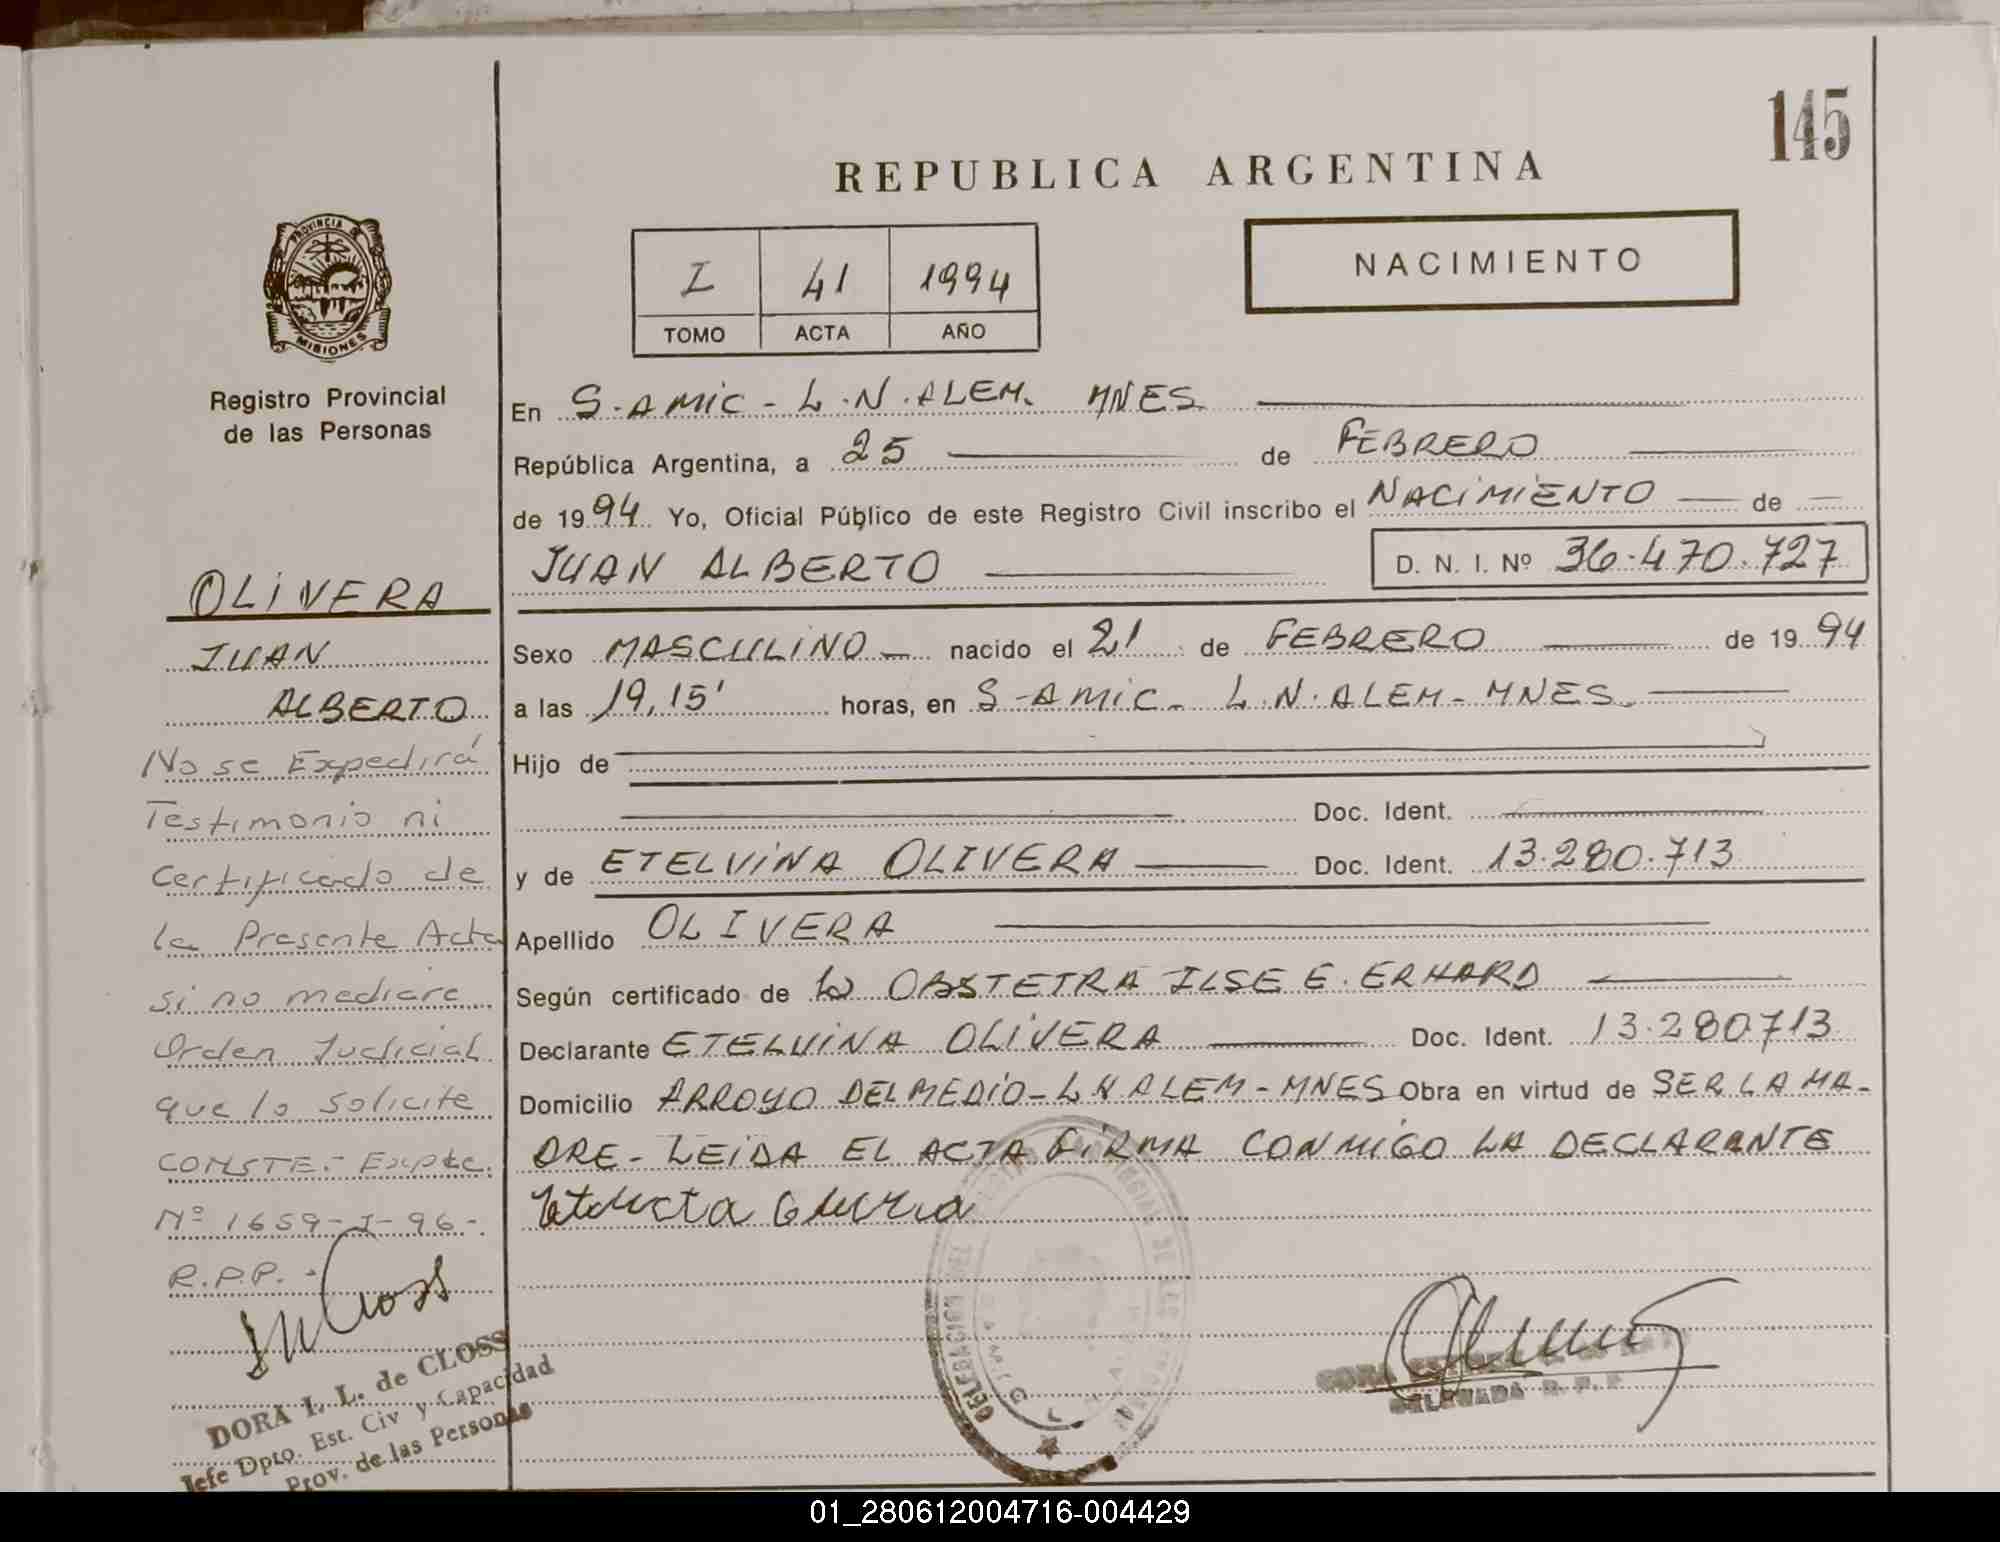 145
REPUBLICA ARGENTINA
PROVINCIA DE
MISIONES
Registro Provincial
de las Personas
I 41 1994
TOMO ACTA AÑO
NACIMIENTO
En S. AMIC - L.N. ALEM. MNES
República Argentina, a 25 de FEBRERO
de 1994 Yo, Oficial Público de este Registro Civil inscribo el NACIMIENTO de
JUAN ALBERTO D. N. I. Nº 36.470.727
Sexo MASCULINO nacido el 21 de FEBRERO de 1994
a las 19,15' horas, en S-AMIC - L.N. ALEM - MNES.
Hijo de
Doc. Ident.
y de ETELVINA OLIVERA Doc. Ident. 13.280.713
Apellido OLIVERA
Según certificado de la OBSTETRA ILSE E. ERHARD
Declarante ETELVINA OLIVERA Doc. Ident. 13.280713
Domicilio ARROYO DEL MEDIO - L N ALEM - MNES Obra en virtud de SER LA MA-
DRE - LEIDA EL ACTA FIRMA CONMIGO LA DECLARANTE
OLIVERA
JUAN
ALBERTO
No se Expedirá
Testimonio ni
Certificado de
la Presente Acta
si no mediare
Orden Judicial
que lo solicite
CONSTE.- Expte.
Nº 1659-I-96-
R.P.P. -
DORA I. L. de CLOSS
Jefe Dpto. Est. Civ y Capacidad
Prov. de las Personas
DELEGADA R. P. P
01_280612004716-004429